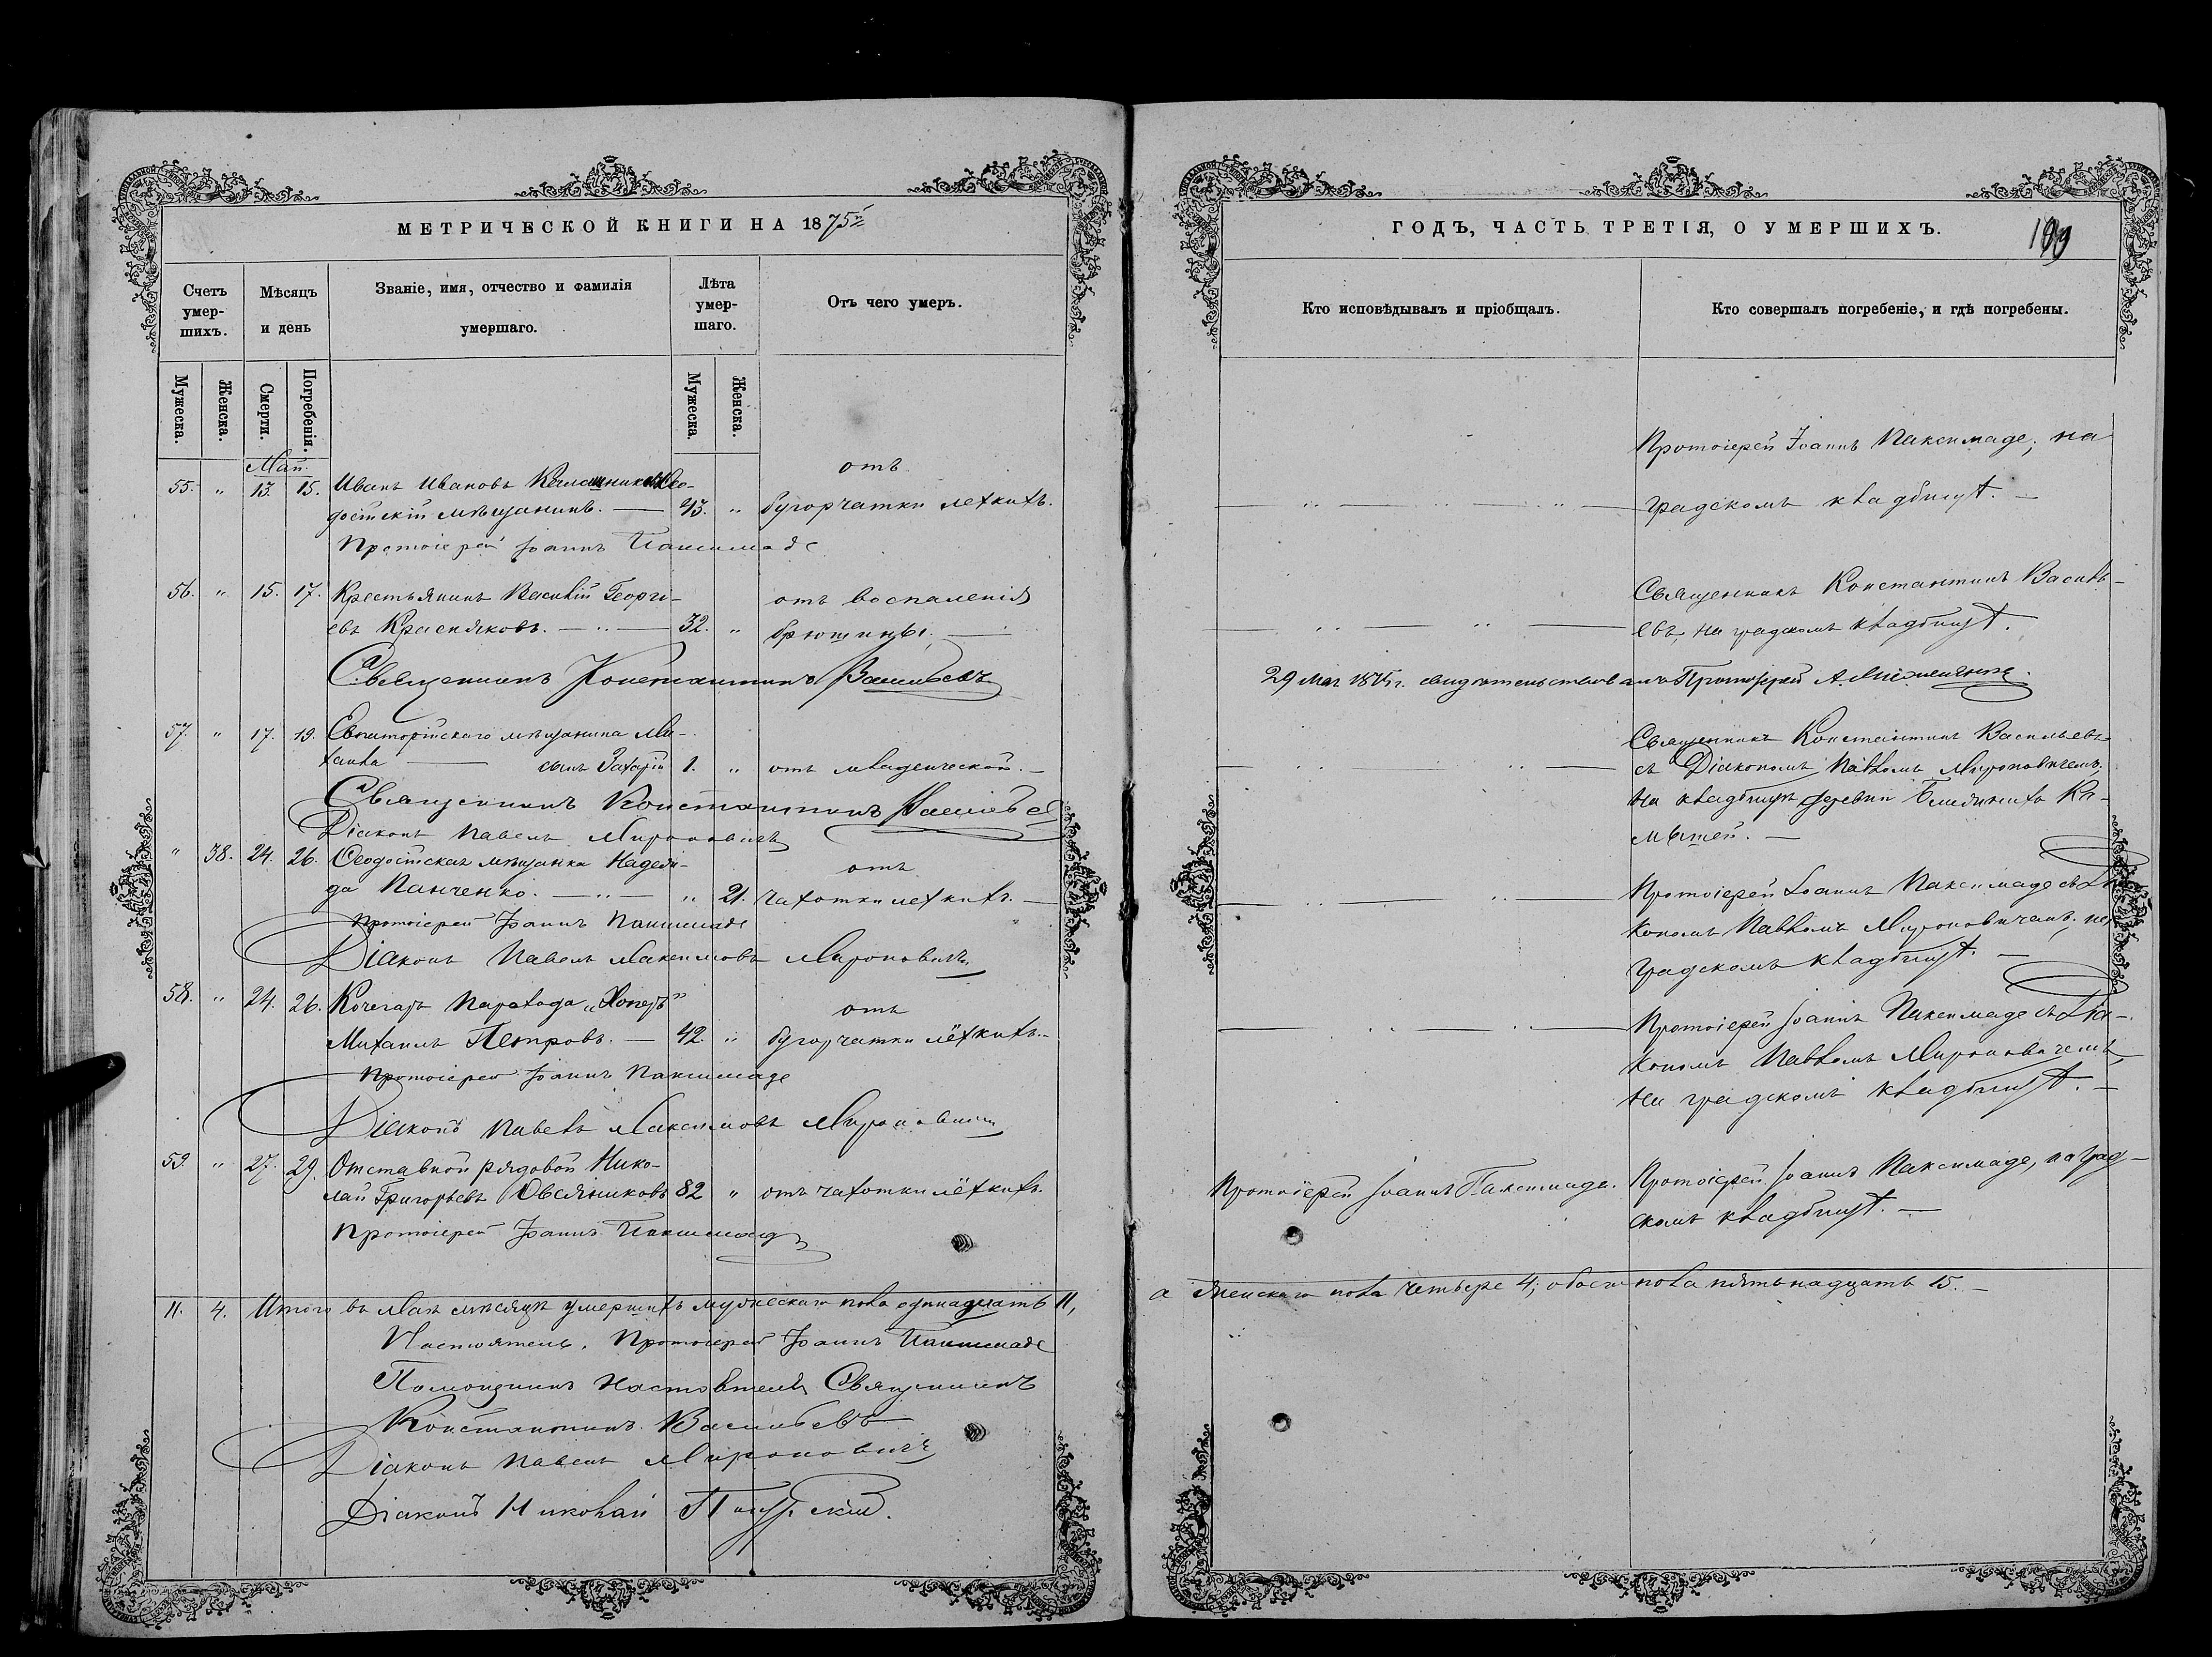 МЕТРИЧЕСКОЙ КНИГИ НА 1875й
Счетъ умер-шихъ.
Мѣсяцъ и день
Званіе, имя, отчество и фамилія
умершаго.
Лѣта умер-шаго.
Отъ чего умеръ.
Мужеска.
Женска.
Смерти.
Погребенія.
Мужеска.
Женска.
Май.
55. " 13. 15. Иванъ Ивановъ Ѳео- отъ
досійскій мѣщанинъ. — 43. " бугорчатки легкихъ.
Протоіерей Іоаннъ Паксимаде
56. " 15. 17. Крестьянинъ Василій Георгі- отъ воспаленія
евъ Красняковъ. — 32. " брюшины. —
Священникъ Константинъ Васильевъ
57. " 17. 19. Евпаторійскаго мѣщанина Ми-
хаила — сынъ Захарій 1. " отъ младенческой. —
Священникъ Константинъ Васильевъ
Діаконъ Павелъ Мироновичъ
" 38. 24. 26. Ѳеодосійская мѣщанка Надеж- отъ
да Панченко. — " 21. чахотки легкихъ. —
Протоіерей Іоаннъ Паксимаде
Діаконъ Павелъ Максимовъ Мироновичъ
58. " 24. 26. Кочегаръ парохода „Хоперъ" отъ
Михаилъ Петровъ. — 42. " бугорчатки лёгкихъ. —
Протоіерей Іоаннъ Паксимаде
Діаконъ Павелъ Максимовъ Мироновичъ
59. " 27. 29. Отставной рядовой Нико-
лай Григорьевъ Овсянниковъ 82 " отъ чахотки лёгкихъ.
Протоіерей Іоаннъ Паксимаде
11. 4. Итого въ Маѣ мѣсяцѣ умершихъ мужескаго пола одинадцать 11,
Настоятель, Протоіерей Іоаннъ Паксимаде
Помощникъ Настоятеля Священникъ
Константинъ Васильевъ
Діаконъ Павелъ Мироновичъ
Діаконъ Николай
ГОДЪ, ЧАСТЬ ТРЕТІЯ, О УМЕРШИХЪ.
Кто исповѣдывалъ и пріобщалъ.
Кто совершалъ погребеніе, и гдѣ погребены.
Протоіерей Іоаннъ Паксимаде, на
градскомъ кладбищѣ. —
Священникъ Константинъ Василь-
евъ, на градскомъ кладбищѣ.
29 Мая 1875 г. свидѣтельствовалъ Протоіерей А.
Священникъ Константинъ Васильевъ
съ Діакономъ Павломъ Мироновичемъ,
на кладбищѣ деревни Ближнихъ Ка-
мышей. —
Протоіерей Іоаннъ Паксимаде съ Діа-
кономъ Павломъ Мироновичемъ, на
градскомъ кладбищѣ. —
Протоіерей Іоаннъ Паксимаде съ Діа-
кономъ Павломъ Мироновичемъ,
на градскомъ кладбищѣ. —
Протоіерей Іоаннъ Паксимаде. Протоіерей Іоаннъ Паксимаде, на град-
скомъ кладбищѣ. —
а женскаго пола четыре 4; обоего пола пятьнадцать 15. —